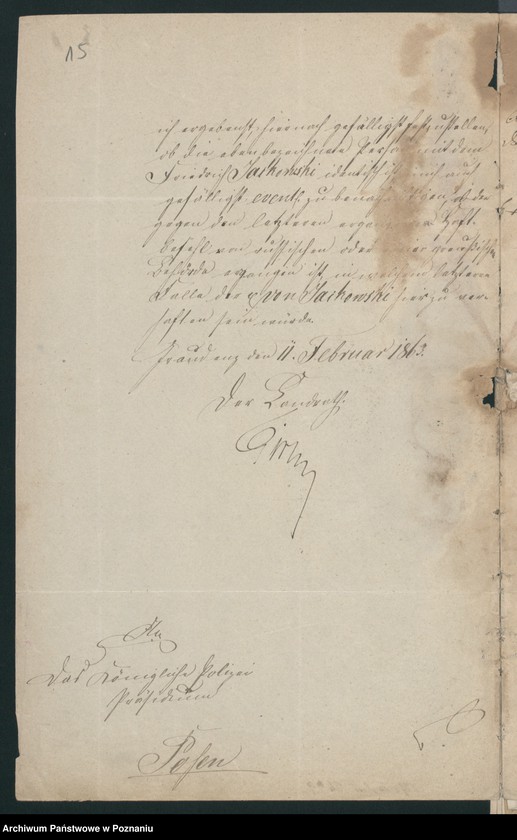 15
ich ergebenst, hiernach gefälligst festzustellen,
ob die obenbezeichnete Person mit dem
Friedrich Jackowski identisch ist und mich
gefälligst event. zu benachrichtigen, ob der
gegen den letzteren ergangene Haft-
befehl von russischen oder einer preußischen
Behörde ergangen ist, in welchem letzteren
Falle der v. von Jackowski hier zu ver-
haften sein würde.
Graudenz den 11. Februar 1863.
Der Landrath.
An
Das Königliche Polizei
Präsidium
Posen
Archiwum Państwowe w Poznaniu